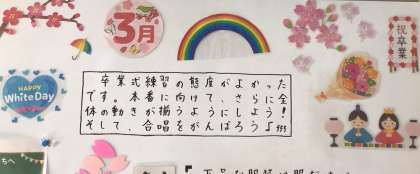 3月
祝卒業
HAPPY
White Day
卒業式練習の態度がよかった
です。本番に向けて、さらに全
体の動きが揃うようにしよう!
そして、合唱をがんばろう♪
ちへ